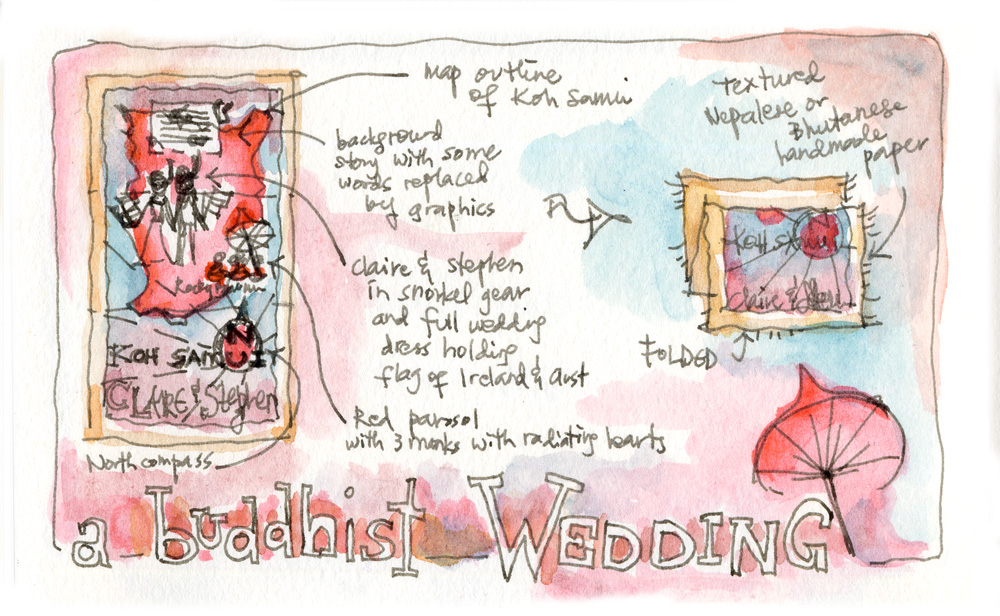 map outline
of Koh Samui
background
story with some
words replaced
by graphics
Claire & Stephen
in snorkel gear
and full wedding
dress holding
flag of Ireland & Aust
Red parasol
with 3 monks with radiating hearts
KOH SAMUI
CLAIRE & Stephen
North compass
Textured
Nepalese or
Bhutanese
handmade
paper
KOH SAMUI
Claire &
FOLDED
a buddhist WEDDING